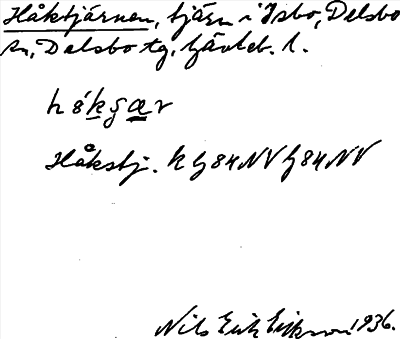 Håktjärnen, tjärn i Isbo, Delsbo
sn, Delsbo tg, Gävleb. l.
Håkstj. k G84NV G84NV
Nils Erik Erikson 1936.